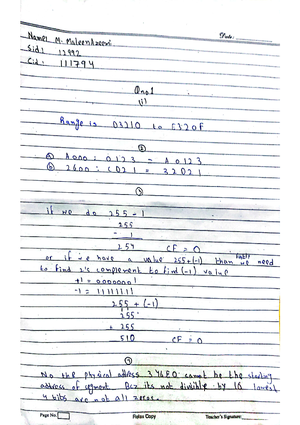 Name: M. Maleenazeem
Date:
Sid: 12992
Cid: 111794
Qno1
(1)
Range is 03210 to 1320F
(2)
(a) A000 : 0123 = A0123
(b) 2600 : C021 = 32021
(3)
if we do 255 - 1
255
- 1
254 CF = 0
or if we have a value 255+(-1) than we need
to find 2's complement to find (-1) value
+1 = 00000001
-1 = 11111111
255 + (-1)
255
+ 255
510 CF = 0
(4)
No the physical address cannot be the starting
address of segment. Bcz its not divisible by 16 lowest
4 bits are not all zeros.
Page No.
Folias Copy
Teacher's Signature: